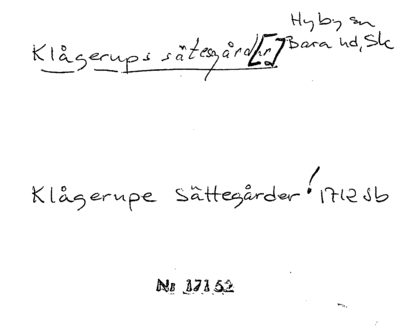 Hyby sn
Klågerups sätesgård[ar] Bara hd, Sk
Klågerupe Sättegårder! 1712 Jb
Nr 17152